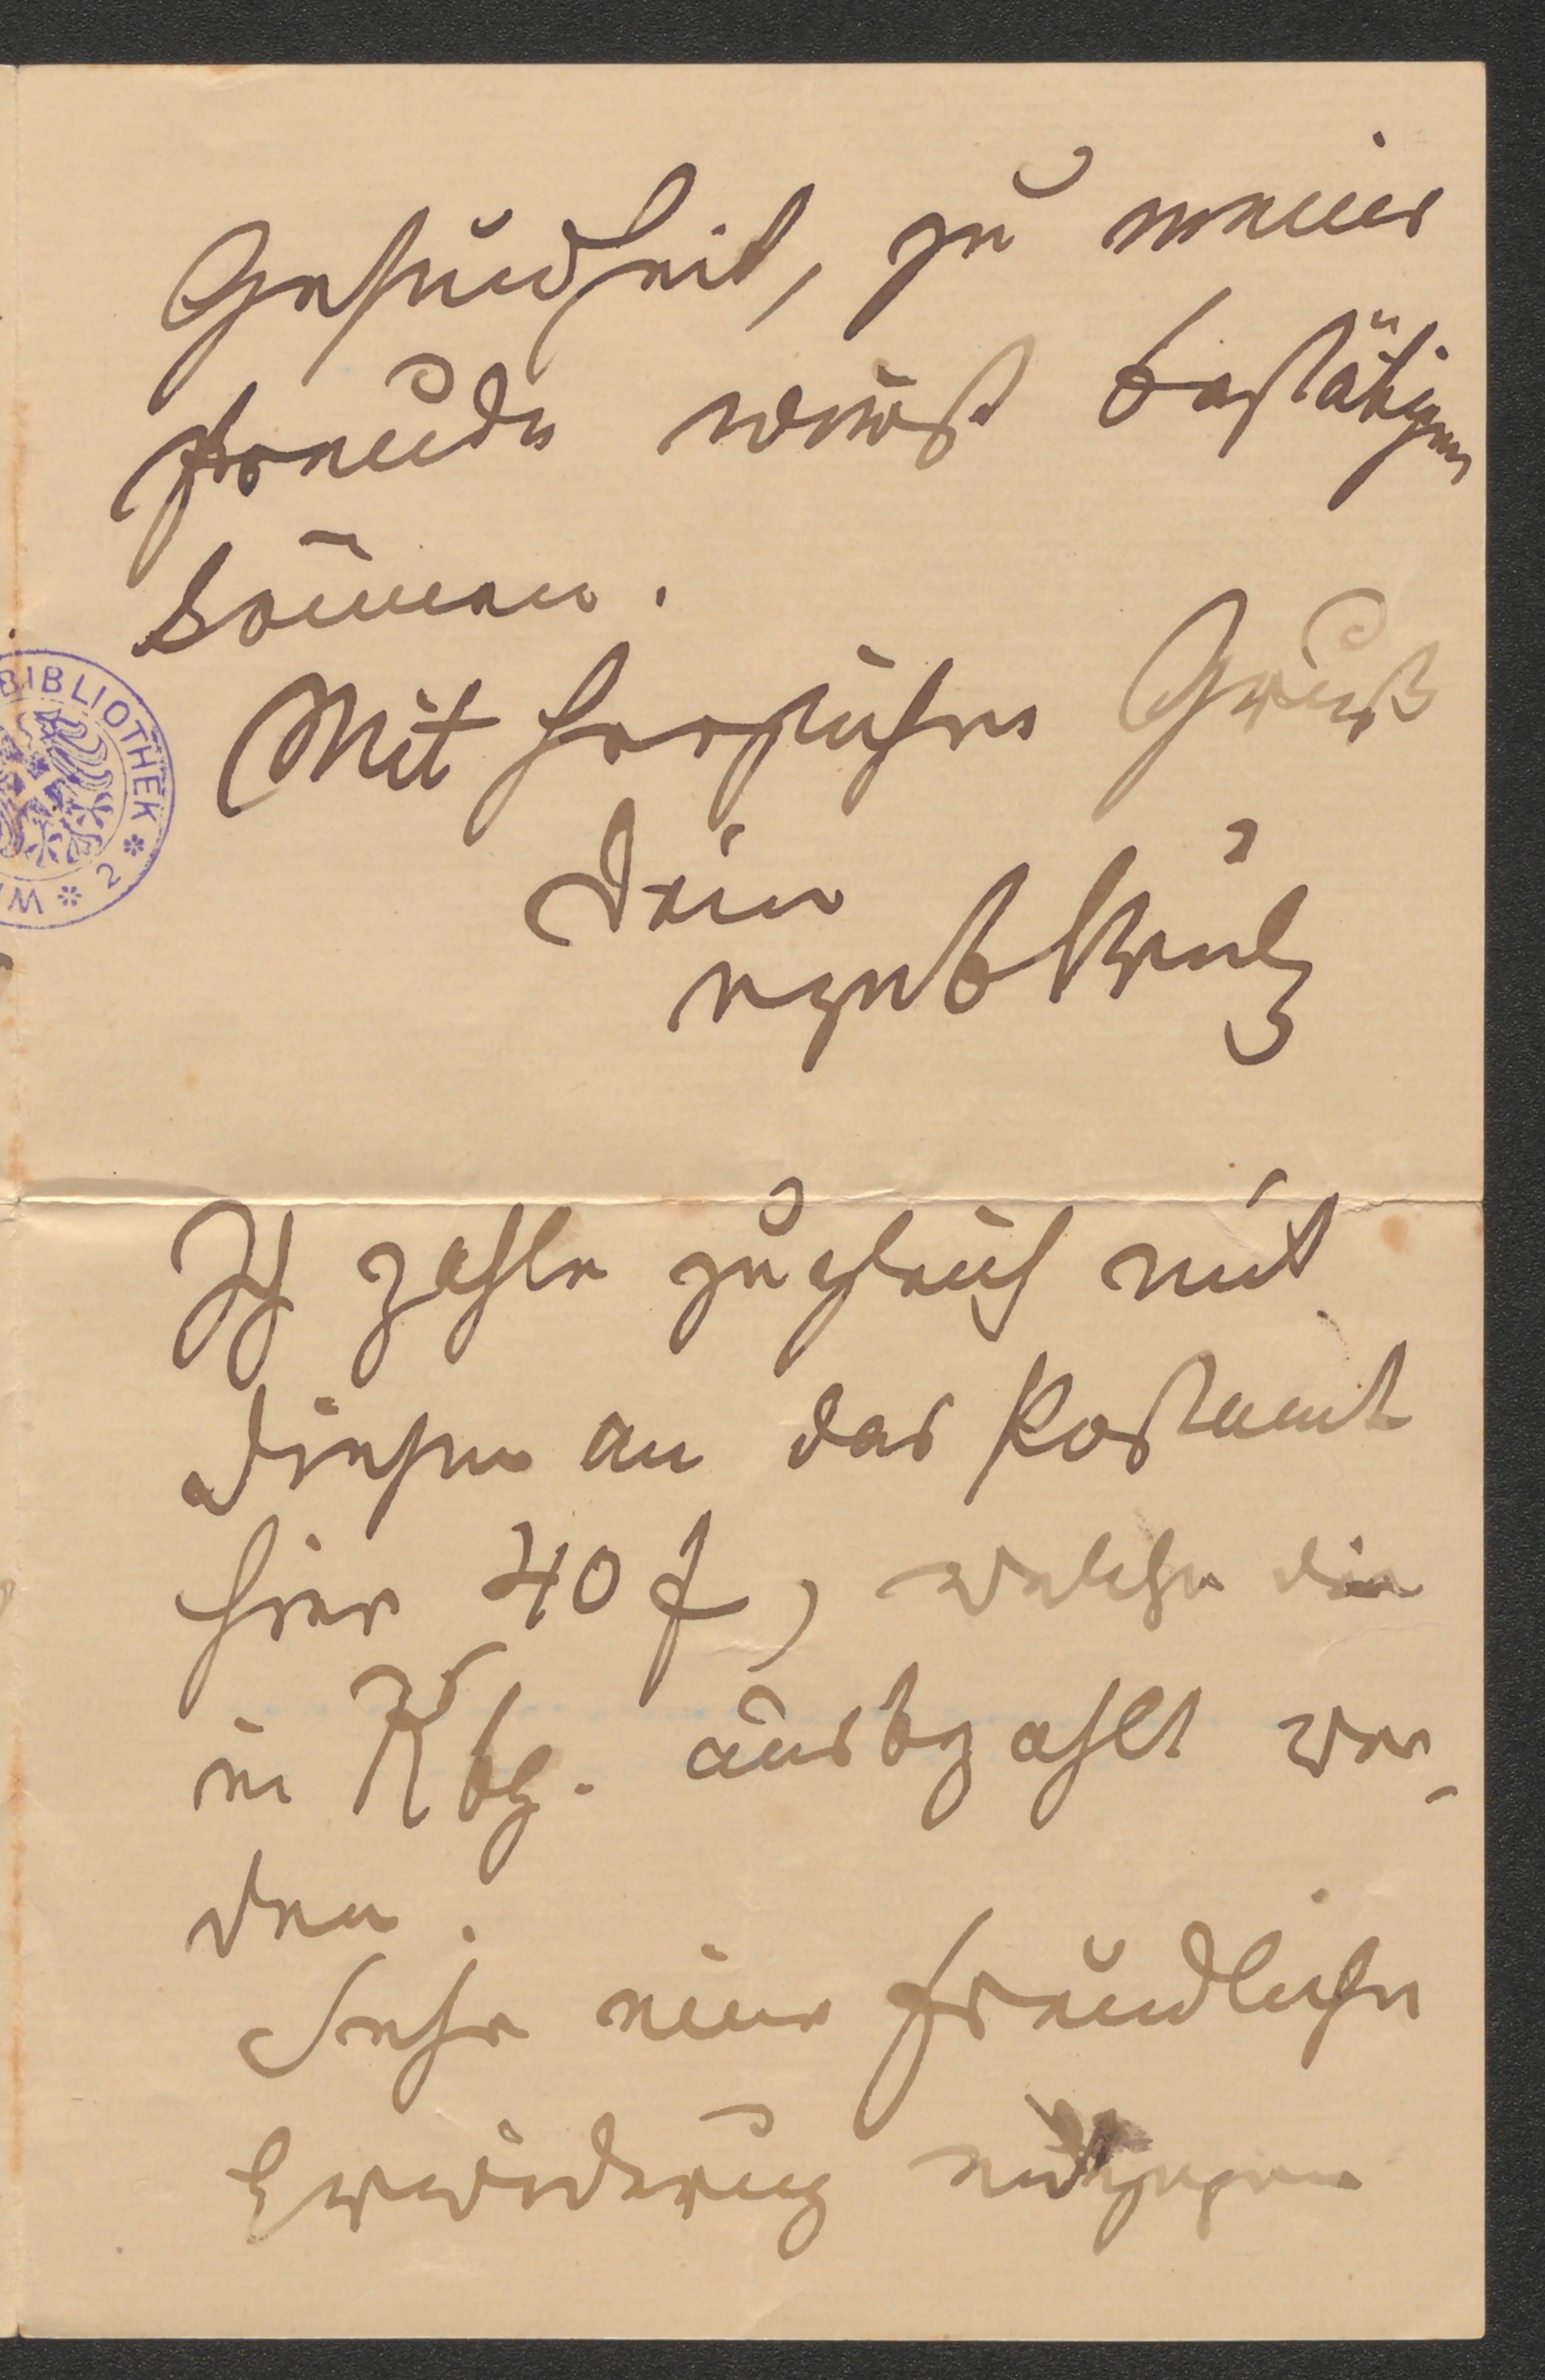 Gesundheit, zu meiner
Freude wirst bestätigen
können.
Mit herzlichem Gruß
Dein
BIBLIOTHEK * 2 * W
Ich zahle zugleich mit
diesem an das Postamt
hier 40 f, welche dir
in Rbg. ausbezahlt wer-
den.
Sehe einer freundlichen
Erwiderung entgegen